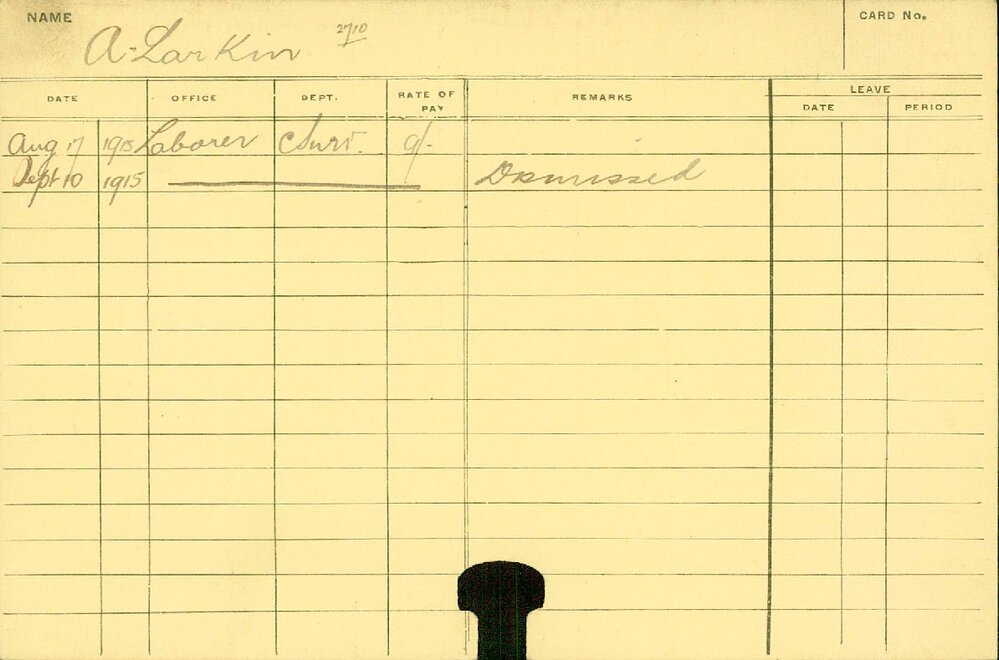 NAME A. Larkin 2710 CARD No.
DATE OFFICE DEPT. RATE OF PAY REMARKS LEAVE
DATE PERIOD
Aug 17 1915 Laborer Surv. 9/-
Sept 10 1915 Dismissed